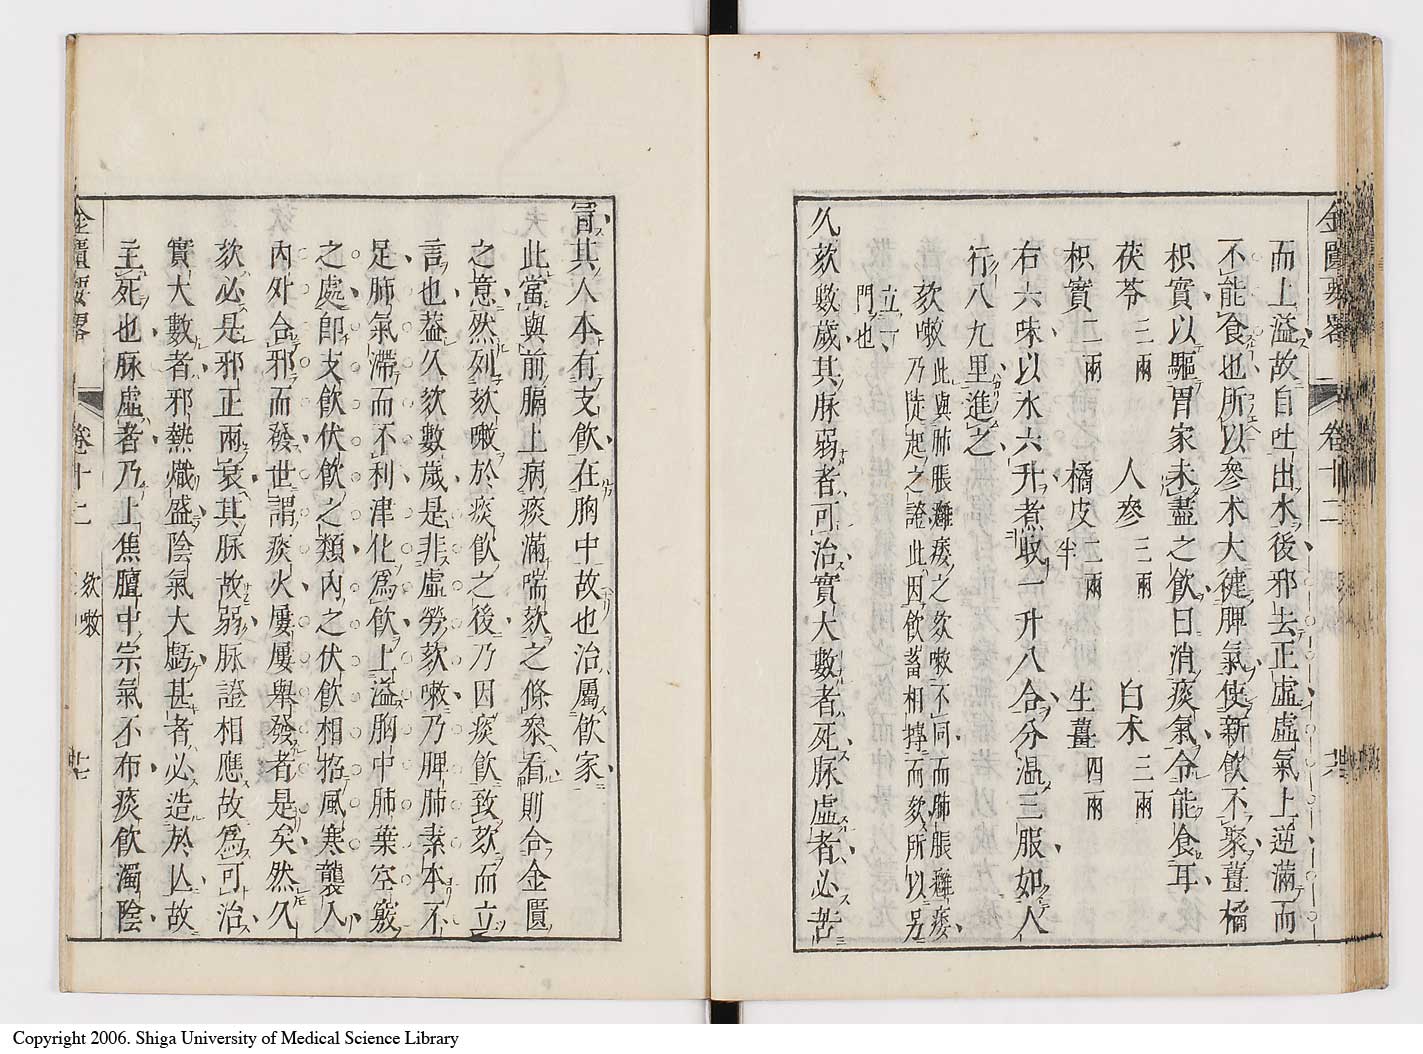 金匱要畧 卷十二
而上溢故自吐出水後邪去正虛虛氣上逆滿而
不能食也所以參术大健脾氣使新飲不聚薑橘
枳實以驅胃家未盡之飲日消痰氣令能食耳
茯苓三兩 人參三兩 白术三兩
枳實二兩 橘皮二兩半 生薑四兩
右六味以水六升煮收一升八合分溫三服如人
行八九里進之
欬嗽此與肺脹癰痿之欬嗽不同而肺脹癰痿
乃陡起之證此因飲蓄相摶而欬所以另
立一
門也
久欬數歲其脉弱者可治實大數者死脉虛者必苦
冒其人本有支飲在胸中故也治屬飲家
此當與前膈上病痰滿喘欬之條叅看則合金匱
之意然列欬嗽於痰飲之後乃因痰飲致欬而立
言也葢久欬數歲是非虛勞欬嗽乃脾肺素本不
足肺氣滯而不利津化爲飮上溢胸中肺葉空竅
之處卽支飮伏飮之類內之伏飮相招風寒襲入
內外合邪而發世謂痰火屢屢舉發者是矣然久
欬必是邪正兩衰其脉故弱脉證相應故爲可治
實大數者邪熱熾盛陰氣大虧甚者必造於亾故
主死也脉虛者乃上焦膻中宗氣不布痰飮濁陰
金匱要畧 卷十二 欬嗽